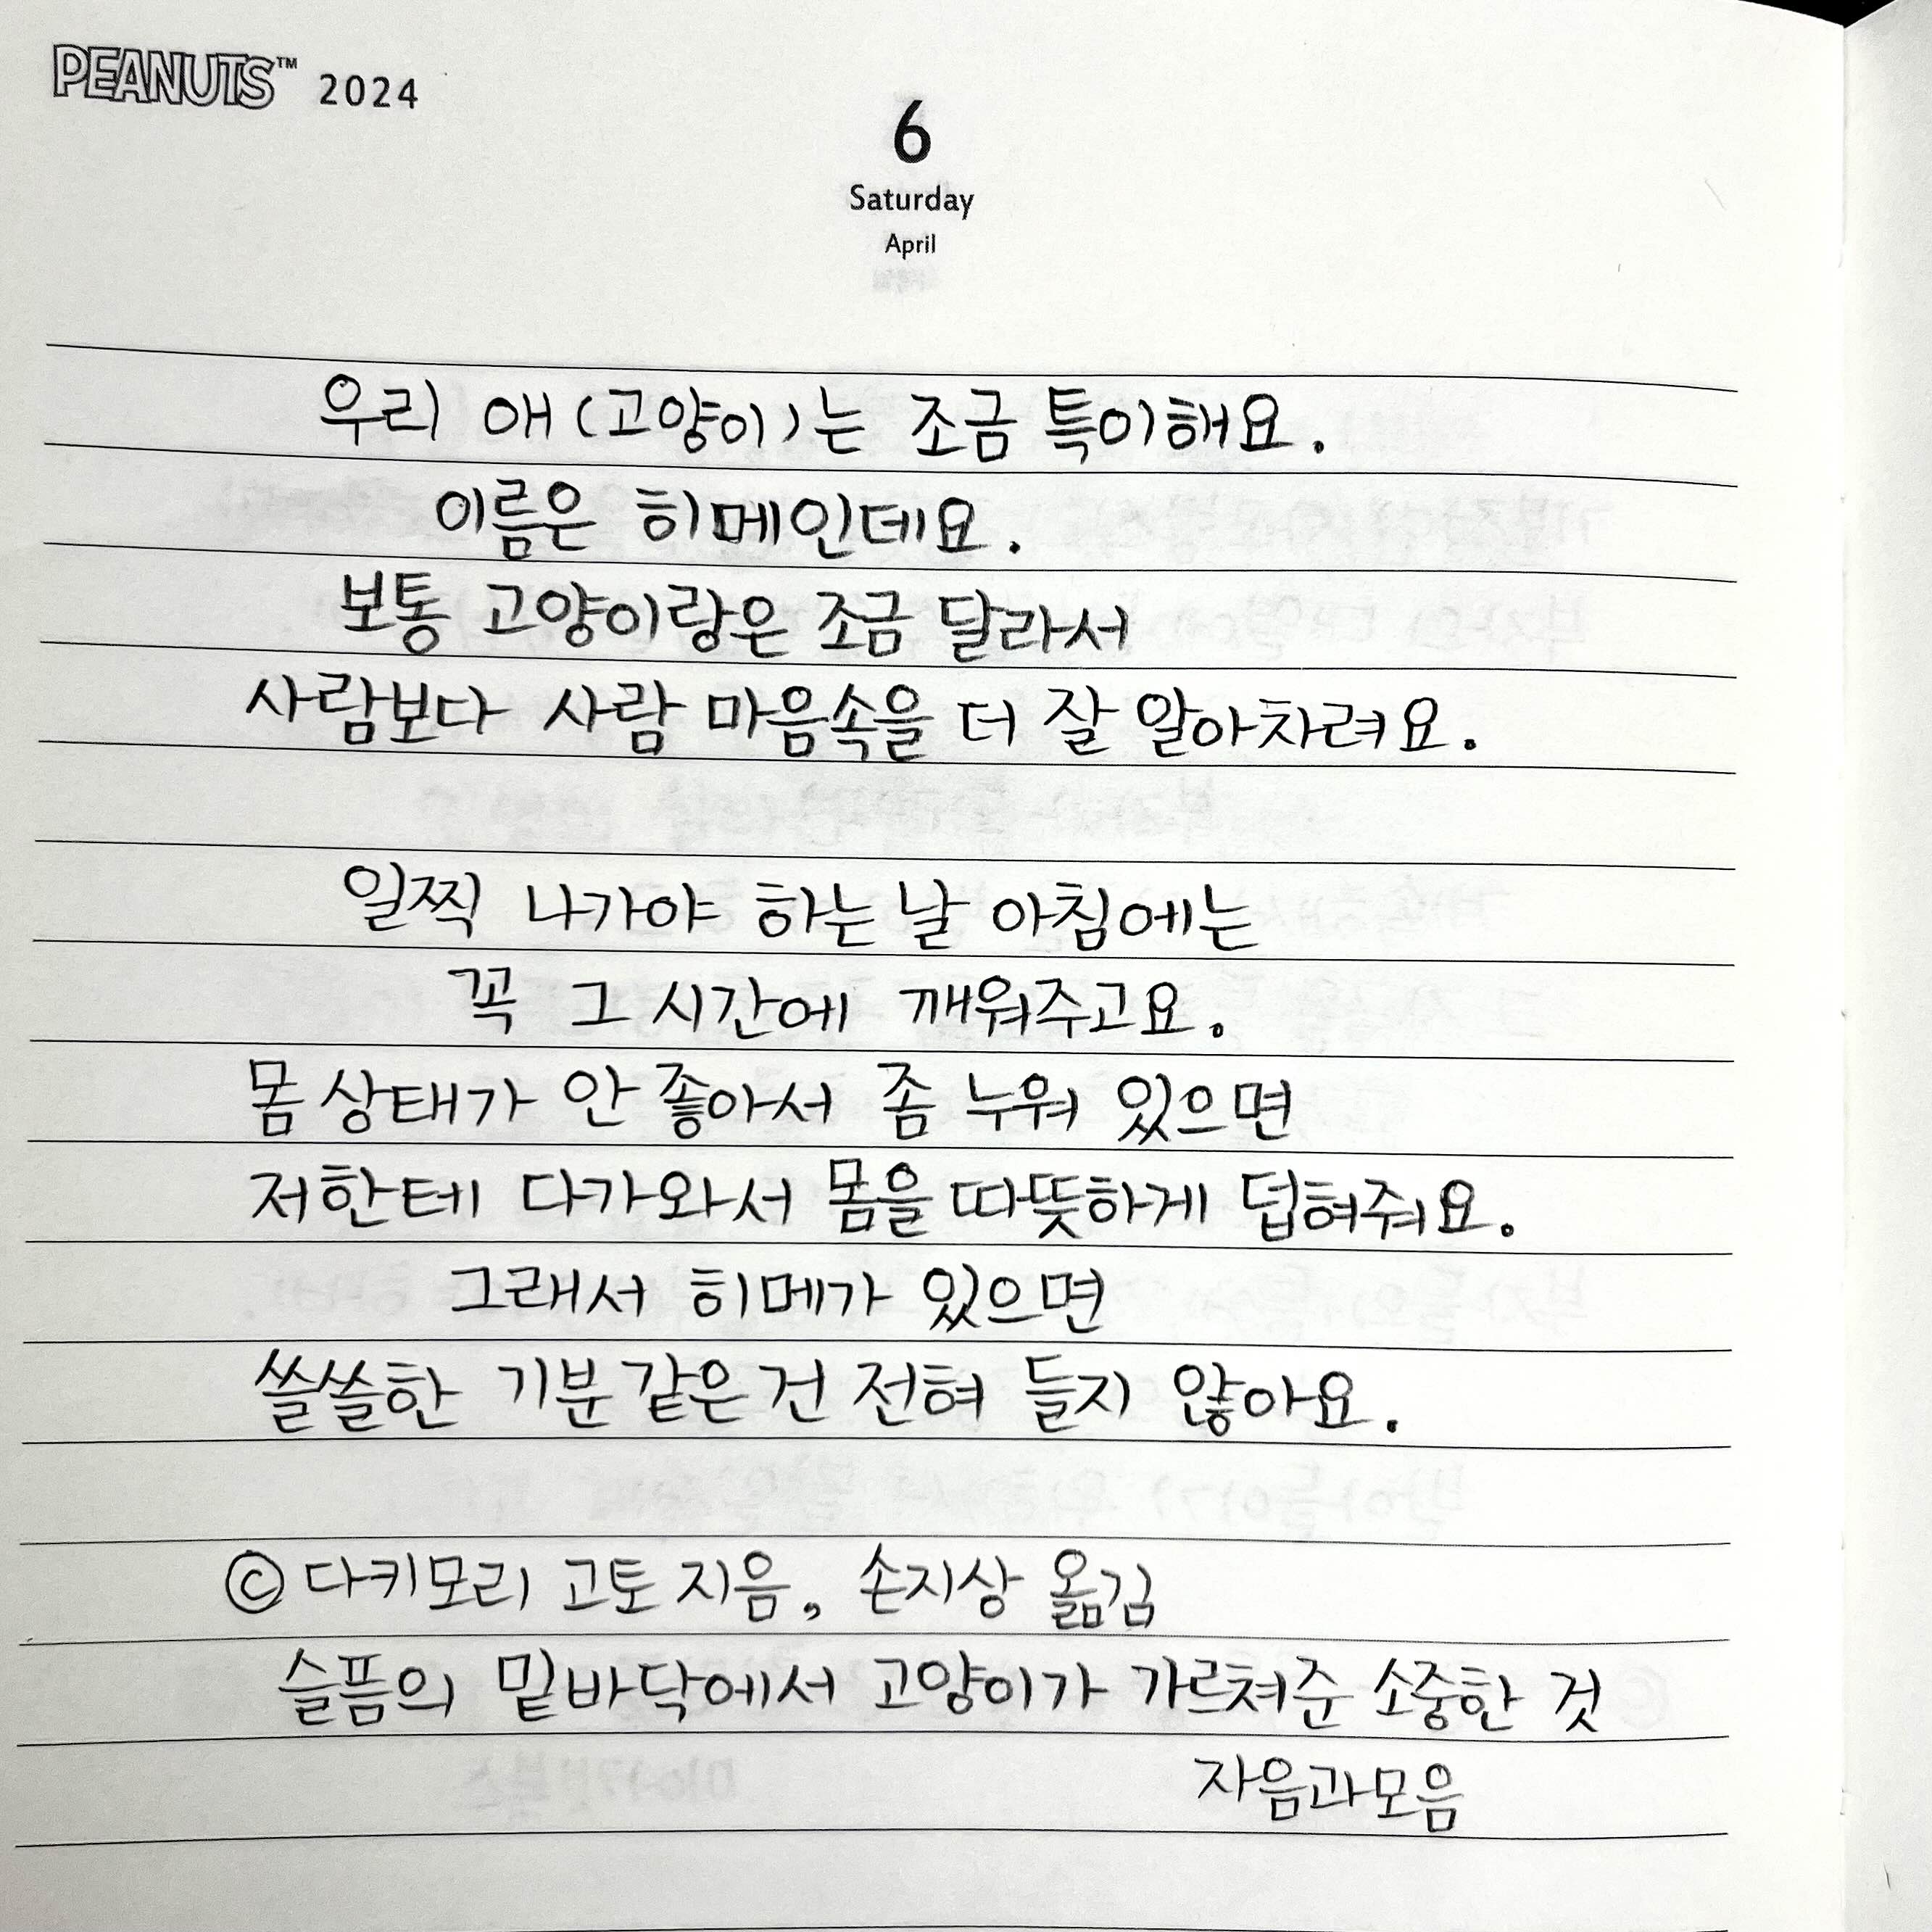 PEANUTS™ 2024
6
Saturday
April
우리 애(고양이)는 조금 특이해요.
이름은 히메인데요.
보통 고양이랑은 조금 달라서
사람보다 사람 마음속을 더 잘 알아차려요.
일찍 나가야 하는 날 아침에는
꼭 그 시간에 깨워주고요.
몸 상태가 안 좋아서 좀 누워 있으면
저한테 다가와서 몸을 따뜻하게 덥혀줘요.
그래서 히메가 있으면
쓸쓸한 기분 같은 건 전혀 들지 않아요.
© 다키모리 고토 지음, 손지상 옮김
슬픔의 밑바닥에서 고양이가 가르쳐준 소중한 것
자음과모음